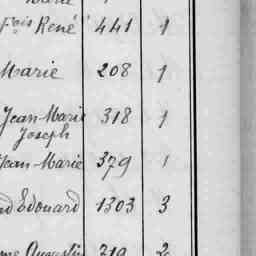 çois René 441 1
Marie 208 1
Jean Marie 318 1
Joseph
Jean Marie 379 1
nd Edouard 1303 3
me Augustin 319 2